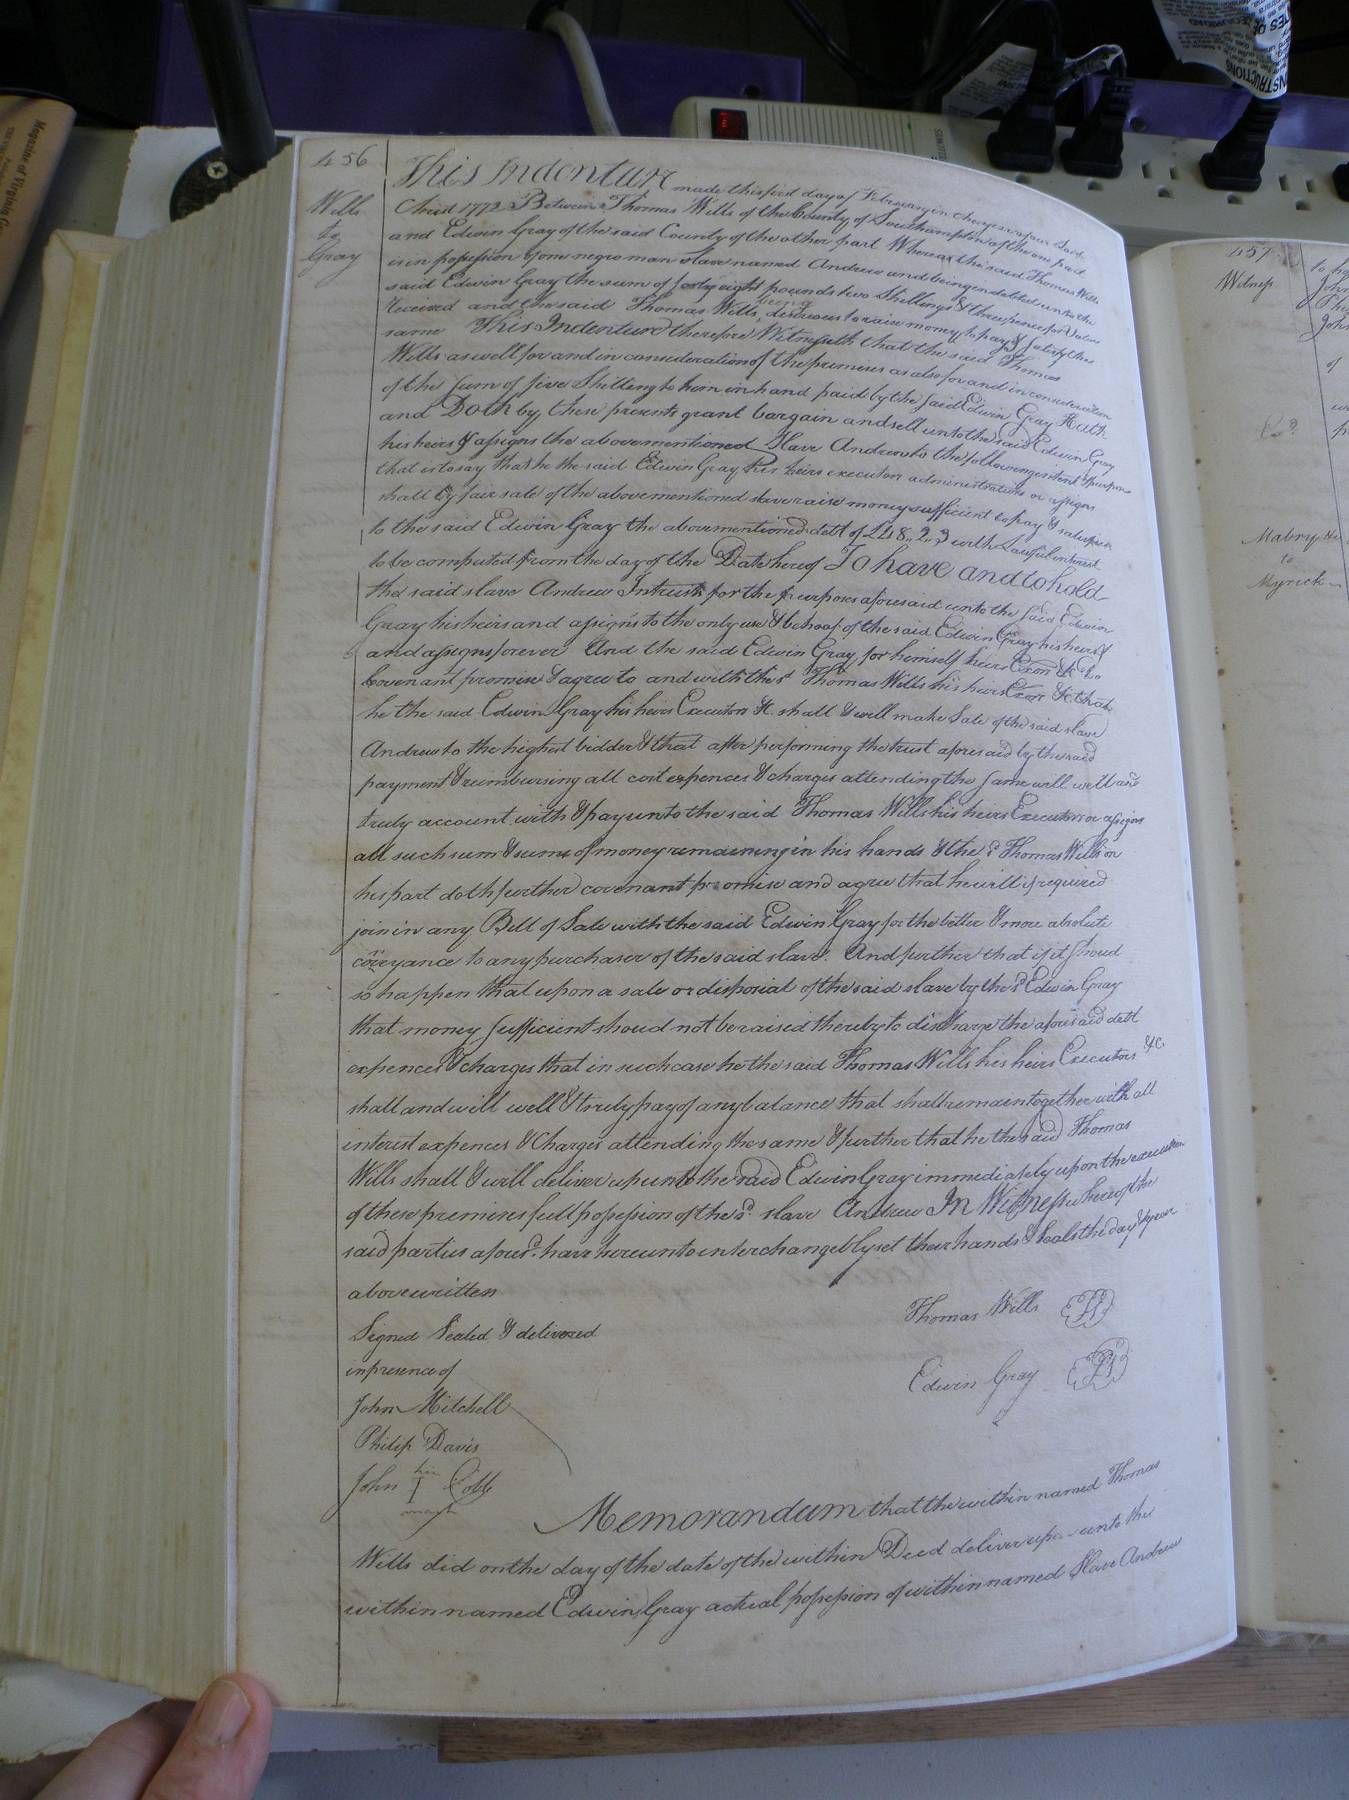 456
Wills
to
Gray
This Indenture made this first day of February in the year of our Lord
Christ 1772 Between Thomas Wills of the County of Southampton of the one part
and Edwin Gray of the said County of the other part Whereas the said Thomas Wills
is in possession of one negro man slave named Andrew and being indebted unto the
said Edwin Gray the sum of forty eight pounds two Shillings & three pence for Value
received and the said Thomas Wills being desirous to raise money to pay & satisfy the
same This Indenture therefore Witnesseth that the said Thomas
Wills as well for and in consideration of the premises as also for and in consideration
of the sum of five Shillings to him in hand paid by the said Edwin Gray Hath
and Doth by these presents grant bargain and sell unto the said Edwin Gray
his heirs & assigns the abovementioned Slave Andrew to the following intent & purpose
that is to say that he the said Edwin Gray his heirs executors administrators or assigns
shall by fair sale of the abovementioned slave raise money sufficient to pay & satisfy
to the said Edwin Gray the abovementioned debt of £48..2..3 with Lawful interest
to be computed from the day of the Date hereof To have and to hold
the said slave Andrew In trust for the purposes aforesaid unto the said Edwin
Gray his heirs and assigns to the only use & behoof of the said Edwin Gray his heirs
and assigns forever And the said Edwin Gray for himself heirs Exors &c do
Covenant promise & agree to and with the sd Thomas Wills his heirs Exors &c that
he the said Edwin Gray his heirs Executors &c. shall & will make Sale of the said slave
Andrew to the highest bidder & that after performing the trust aforesaid by the said
payment & reimbursing all cost expences & charges attending the same will well and
truly account with & pay unto the said Thomas Wills his heirs Executors or assigns
all such sum & sums of money remaining in his hands & the sd Thomas Wills on
his part doth further covenant promise and agree that he will if required
join in any Bill of Sale with the said Edwin Gray for the better & more absolute
coveyance to any purchaser of the said slave. And further that if it shoud
so happen that upon a sale or disposial of the said slave by the sd Edwin Gray
that money sufficient shoud not be raised thereby to discharge the aforesaid debt
expences & charges that in such case he the said Thomas Wills his heirs Executors &c
shall and will well & truly pay of any balance that shall remain together with all
interest expences & Charges attending the same & further that he the said Thomas
Wills shall & will deliver up unto the said Edwin Gray immediately upon the execution
of these premises full possession of the sd. slave Andrew In Witness whereof the
said parties aforesd. have hereunto interchangebly set their hands & seals the day & year
above written
Thomas Wills
Signed Sealed & delivered
in presence of
Edwin Gray
John Mitchell
Philip Davis
John his Cobb
mark
Memorandum that the within named Thomas
Wills did on the day of the date of the within Deed deliver up unto the
within named Edwin Gray actual possession of within named Slave Andrew
457
Witness
Mabry
to
Myrick